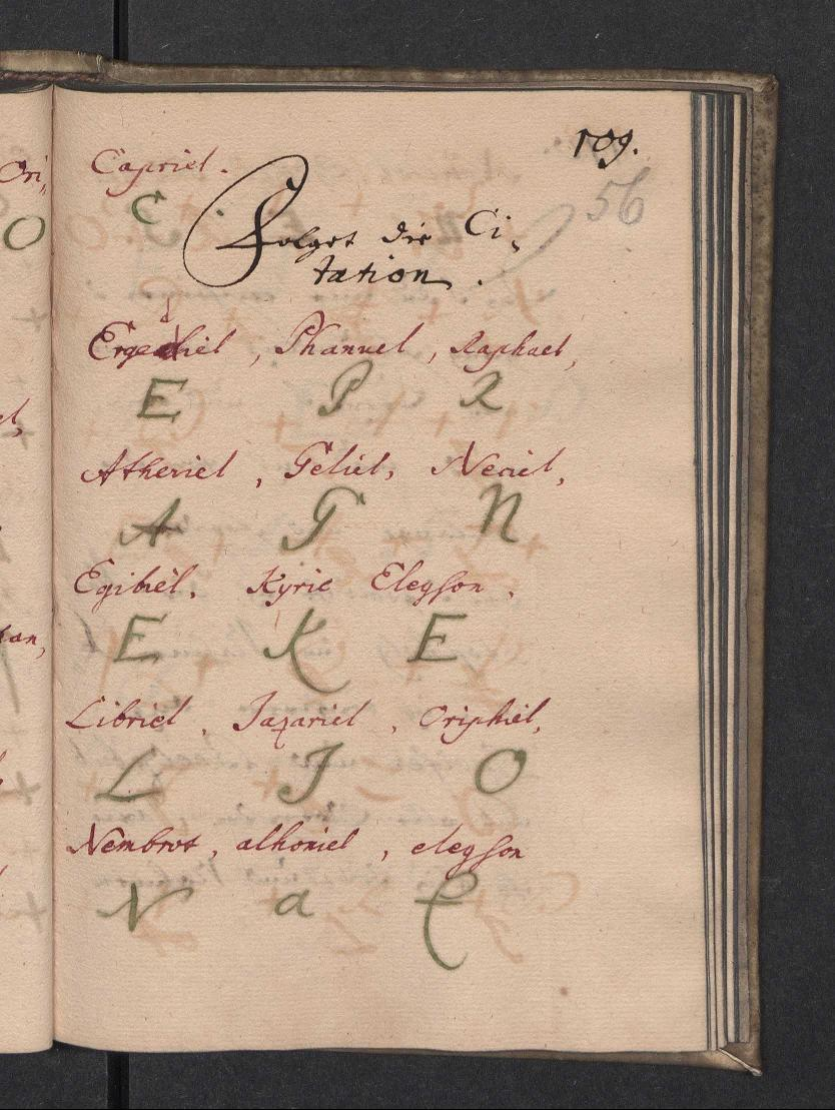 109.
56
Capriel.
C
Folget die Ci-
tation.
Phanuel, Raphael,
E P R
Atheriel, Geliel, Neciel,
A G N
Egibiel. Kyrie Elegson.
E K E
Libriel, Jazariel, Oriphiel,
L J O
Nembrot, alhoniel, elegson
N a E
Ori,
O